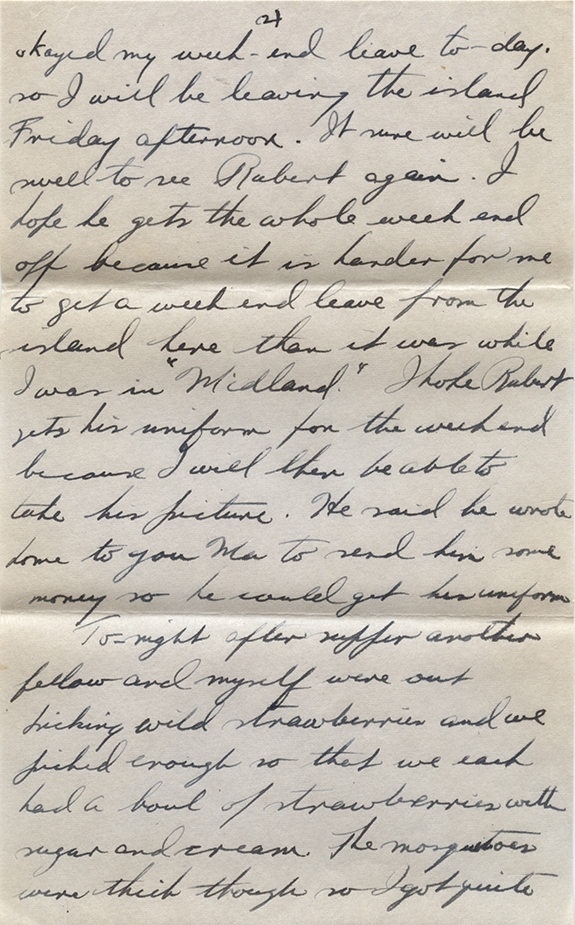 2
okayed my week-end leave to-day.
so I will be leaving the island
Friday afternoon. It sure will be
swell to see Robert again. I
hope he gets the whole week end
off because it is harder for me
to get a week end leave from the
island here than it was while
I was in "Midland." I hope Robert
gets his uniform for the week end
because I will then be able to
take his picture. He said he wrote
home to you Ma to send him some
money so he could get his uniform
To-night after supper another
fellow and myself were out
picking wild strawberries and we
picked enough so that we each
had a bowl of strawberries with
sugar and cream. The mosquitoes
were thick though so I got quite